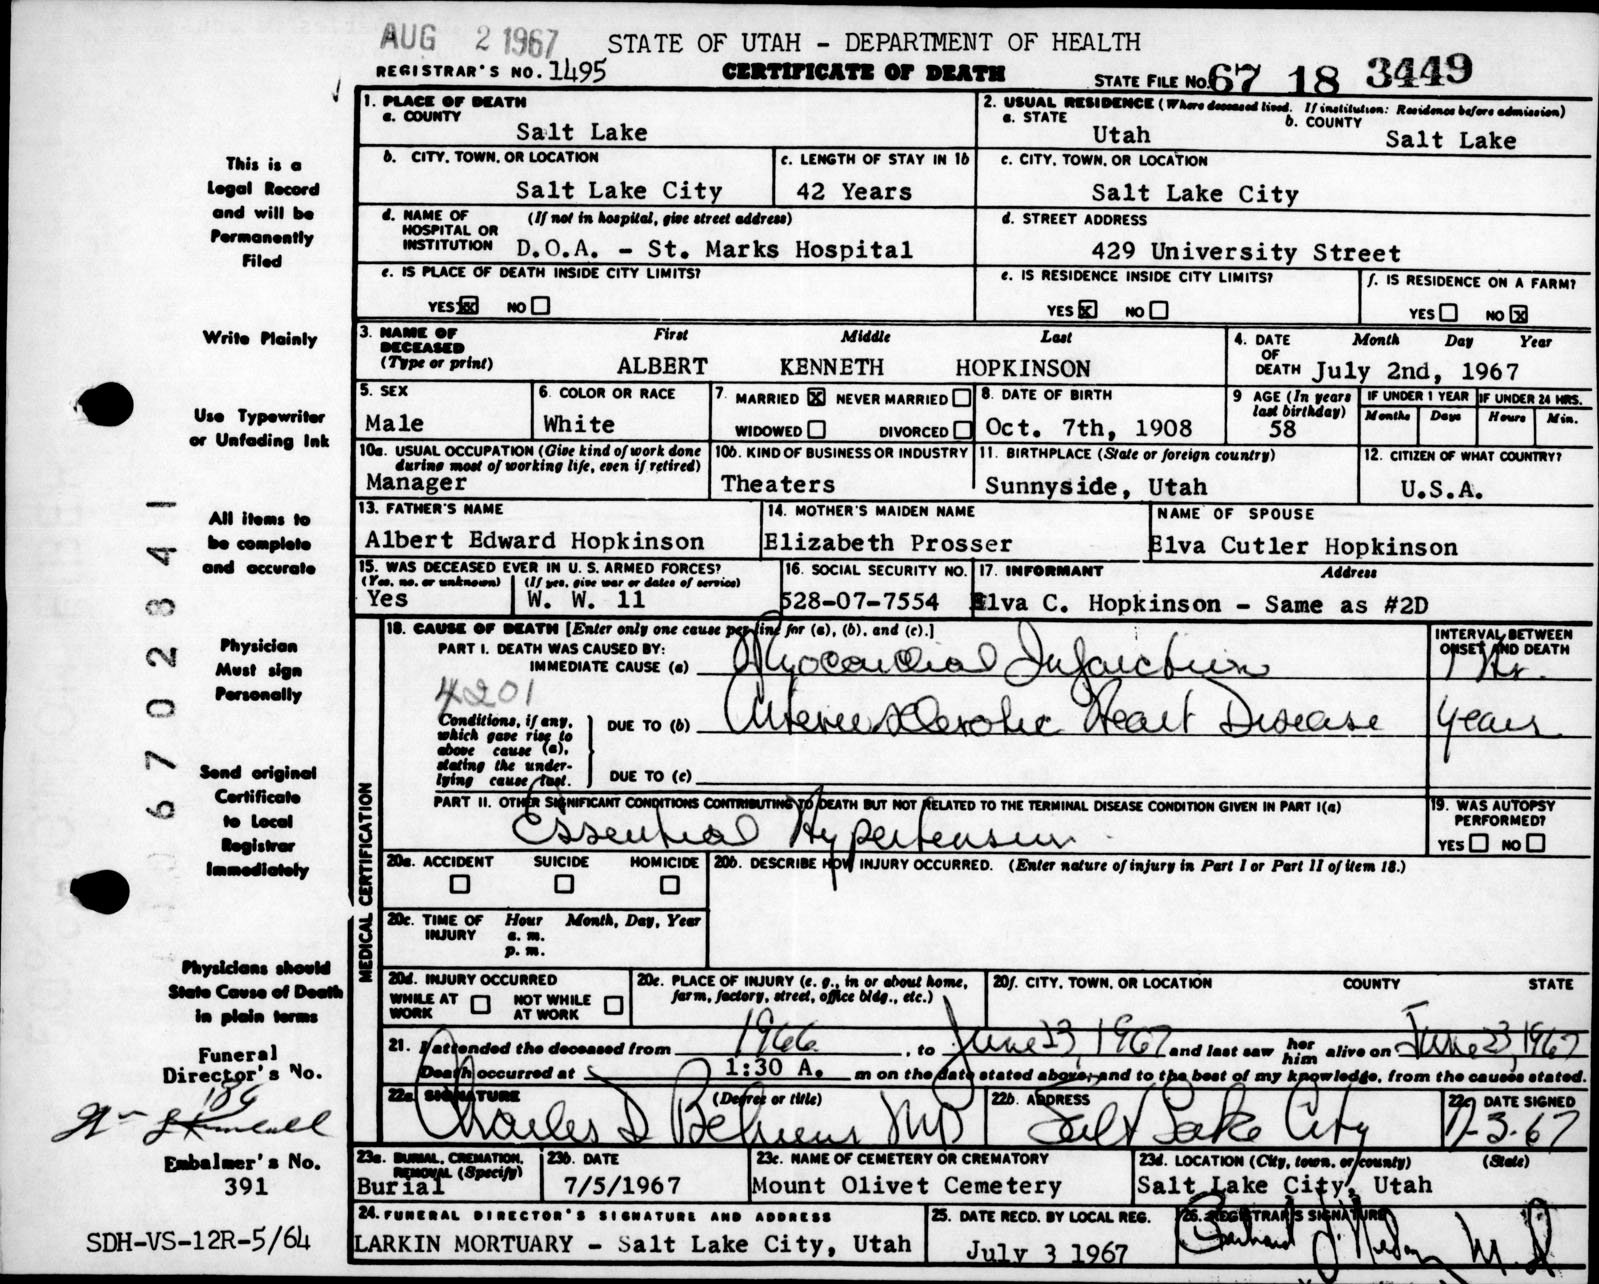 AUG 2 1967
STATE OF UTAH - DEPARTMENT OF HEALTH
REGISTRAR'S NO. 1495
CERTIFICATE OF DEATH
STATE FILE NO. 67 18 3449
This is a
Legal Record
and will be
Permanently
Filed
Write Plainly
Use Typewriter
or Unfading Ink
All items to
be complete
and accurate
Physician
Must sign
Personally
Send original
Certificate
to Local
Registrar
Immediately
Physicians should
State Cause of Death
in plain terms
Funeral
Director's No.
186
Embalmer's No.
391
SDH-VS-12R-5/64
1. PLACE OF DEATH
a. COUNTY
Salt Lake
2. USUAL RESIDENCE (Where deceased lived. If institution: Residence before admission)
a. STATE
Utah
b. COUNTY
Salt Lake
b. CITY, TOWN, OR LOCATION
Salt Lake City
c. LENGTH OF STAY IN 1b
42 Years
c. CITY, TOWN, OR LOCATION
Salt Lake City
d. NAME OF HOSPITAL OR INSTITUTION (If not in hospital, give street address)
D.O.A. - St. Marks Hospital
d. STREET ADDRESS
429 University Street
e. IS PLACE OF DEATH INSIDE CITY LIMITS?
YES XX NO
e. IS RESIDENCE INSIDE CITY LIMITS?
YES X NO
f. IS RESIDENCE ON A FARM?
YES NO X
3. NAME OF DECEASED (Type or print)
First Middle Last
ALBERT KENNETH HOPKINSON
4. DATE OF DEATH
Month Day Year
July 2nd, 1967
5. SEX
Male
6. COLOR OR RACE
White
7. MARRIED X NEVER MARRIED
WIDOWED DIVORCED
8. DATE OF BIRTH
Oct. 7th, 1908
9 AGE (In years last birthday)
58
IF UNDER 1 YEAR
Months Days
IF UNDER 24 HRS.
Hours Min.
10a. USUAL OCCUPATION (Give kind of work done during most of working life, even if retired)
Manager
10b. KIND OF BUSINESS OR INDUSTRY
Theaters
11. BIRTHPLACE (State or foreign country)
Sunnyside, Utah
12. CITIZEN OF WHAT COUNTRY?
U.S.A.
13. FATHER'S NAME
Albert Edward Hopkinson
14. MOTHER'S MAIDEN NAME
Elizabeth Prosser
NAME OF SPOUSE
Elva Cutler Hopkinson
15. WAS DECEASED EVER IN U.S. ARMED FORCES?
(Yes, no, or unknown) (If yes, give war or dates of service)
Yes W. W. 11
16. SOCIAL SECURITY NO.
528-07-7554
17. INFORMANT Address
Elva C. Hopkinson - Same as #2D
MEDICAL CERTIFICATION
18. CAUSE OF DEATH [Enter only one cause per line for (a), (b), and (c).]
PART I. DEATH WAS CAUSED BY:
IMMEDIATE CAUSE (a) Myocardial Infarction
INTERVAL BETWEEN ONSET AND DEATH
1 Hr.
4201
Conditions, if any, which gave rise to above cause (a), stating the underlying cause last.
DUE TO (b) Arteriosclerotic Heart Disease
Years
DUE TO (c)
PART II. OTHER SIGNIFICANT CONDITIONS CONTRIBUTING TO DEATH BUT NOT RELATED TO THE TERMINAL DISEASE CONDITION GIVEN IN PART I(a)
Essential Hypertension
19. WAS AUTOPSY PERFORMED?
YES NO
20a. ACCIDENT SUICIDE HOMICIDE
20b. DESCRIBE HOW INJURY OCCURRED. (Enter nature of injury in Part I or Part II of item 18.)
20c. TIME OF INJURY
Hour Month, Day, Year
a. m.
p. m.
20d. INJURY OCCURRED
WHILE AT WORK NOT WHILE AT WORK
20e. PLACE OF INJURY (e. g., in or about home, farm, factory, street, office bldg., etc.)
20f. CITY, TOWN, OR LOCATION COUNTY STATE
21. I attended the deceased from 1966, to June 23, 1967 and last saw her him alive on June 23, 1967
Death occurred at 1:30 A. m on the date stated above, and to the best of my knowledge, from the causes stated.
22a. SIGNATURE (Degree or title)
Charles D Behrens MD
22b. ADDRESS
Salt Lake City
22c. DATE SIGNED
7-3-67
23a. BURIAL, CREMATION, REMOVAL (Specify)
Burial
23b. DATE
7/5/1967
23c. NAME OF CEMETERY OR CREMATORY
Mount Olivet Cemetery
23d. LOCATION (City, town, or county) (State)
Salt Lake City, Utah
24. FUNERAL DIRECTOR'S SIGNATURE AND ADDRESS
LARKIN MORTUARY - Salt Lake City, Utah
25. DATE RECD. BY LOCAL REG.
July 3 1967
26. REGISTRAR'S SIGNATURE